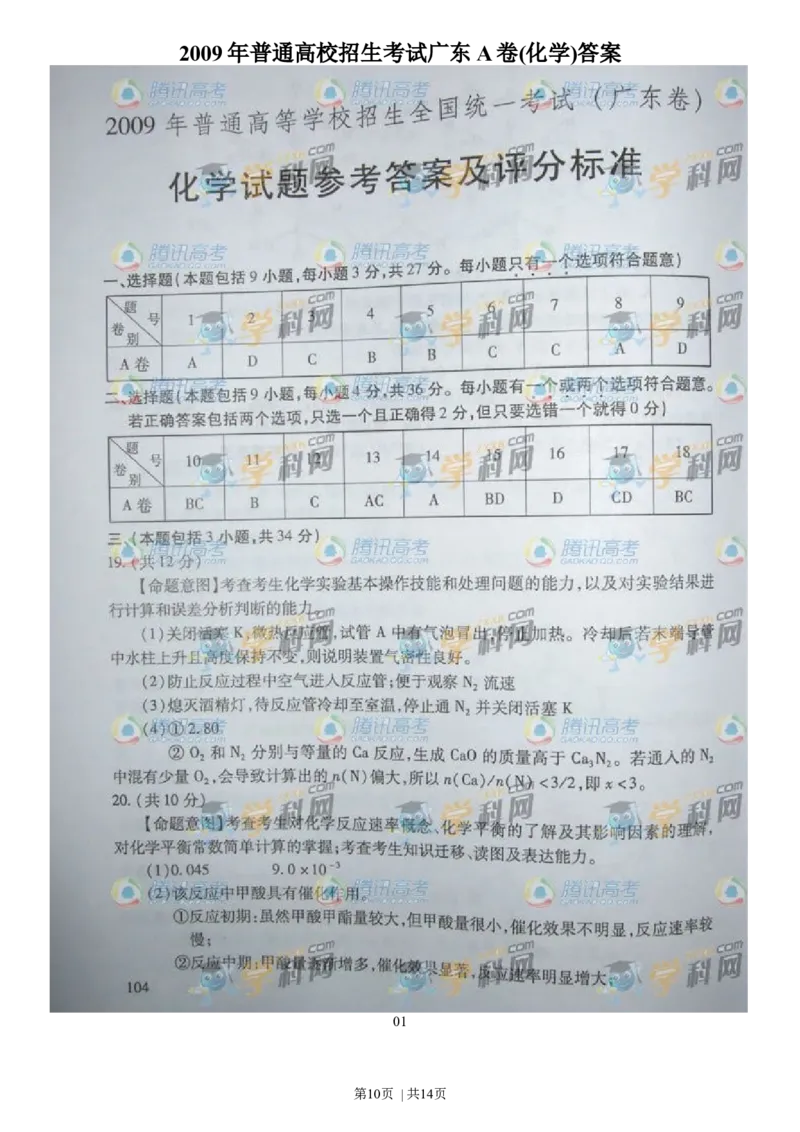 2009 年普通高校招生考试广东 A 卷(化学)答案
2009 年普通高等学校招生全国统一考试（广东卷）
化学试题参考答案及评分标准
一、选择题(本题包括 9 小题,每小题 3 分,共 27 分。每小题只有一个选项符合题意)
题号 卷别 1 2 3 4 5 6 7 8 9
A 卷 A D C B B C C A D
二、选择题(本题包括 9 小题,每小题 4 分,共 36 分。每小题有一个或两个选项符合题意。
若正确答案包括两个选项,只选一个且正确得 2 分,但只要选错一个就得 0 分)
题号 卷别 10 11 12 13 14 15 16 17 18
A 卷 BC B C AC A BD D CD BC
三、(本题包括 3 小题,共 34 分)
19. (共 12 分)
【命题意图】考查考生化学实验基本操作技能和处理问题的能力,以及对实验结果进
行计算和误差分析判断的能力。
(1)关闭活塞 K,微热反应管,试管 A 中有气泡冒出,停止加热。冷却后若末端导管
中水柱上升且高度保持不变,则说明装置气密性良好。
(2)防止反应过程中空气进入反应管;便于观察 N₂ 流速
(3)熄灭酒精灯,待反应管冷却至室温,停止通 N₂ 并关闭活塞 K
(4)①2.80
② O₂ 和 N₂ 分别与等量的 Ca 反应,生成 CaO 的质量高于 Ca₃N₂。若通入的 N₂
中混有少量 O₂,会导致计算出的 n(N)偏大,所以 n(Ca)/n(N)<3/2,即 x<3。
20. (共 10 分)
【命题意图】考查考生对化学反应速率概念、化学平衡的了解及其影响因素的理解,
对化学平衡常数简单计算的掌握;考查考生知识迁移、读图及表达能力。
(1)0.045 9.0×10⁻³
(2)该反应中甲酸具有催化作用。
①反应初期:虽然甲酸甲酯量较大,但甲酸量很小,催化效果不明显,反应速率较
慢;
②反应中期:甲酸量逐渐增多,催化效果显著,反应速率明显增大;
104
01
第10页 | 共14页